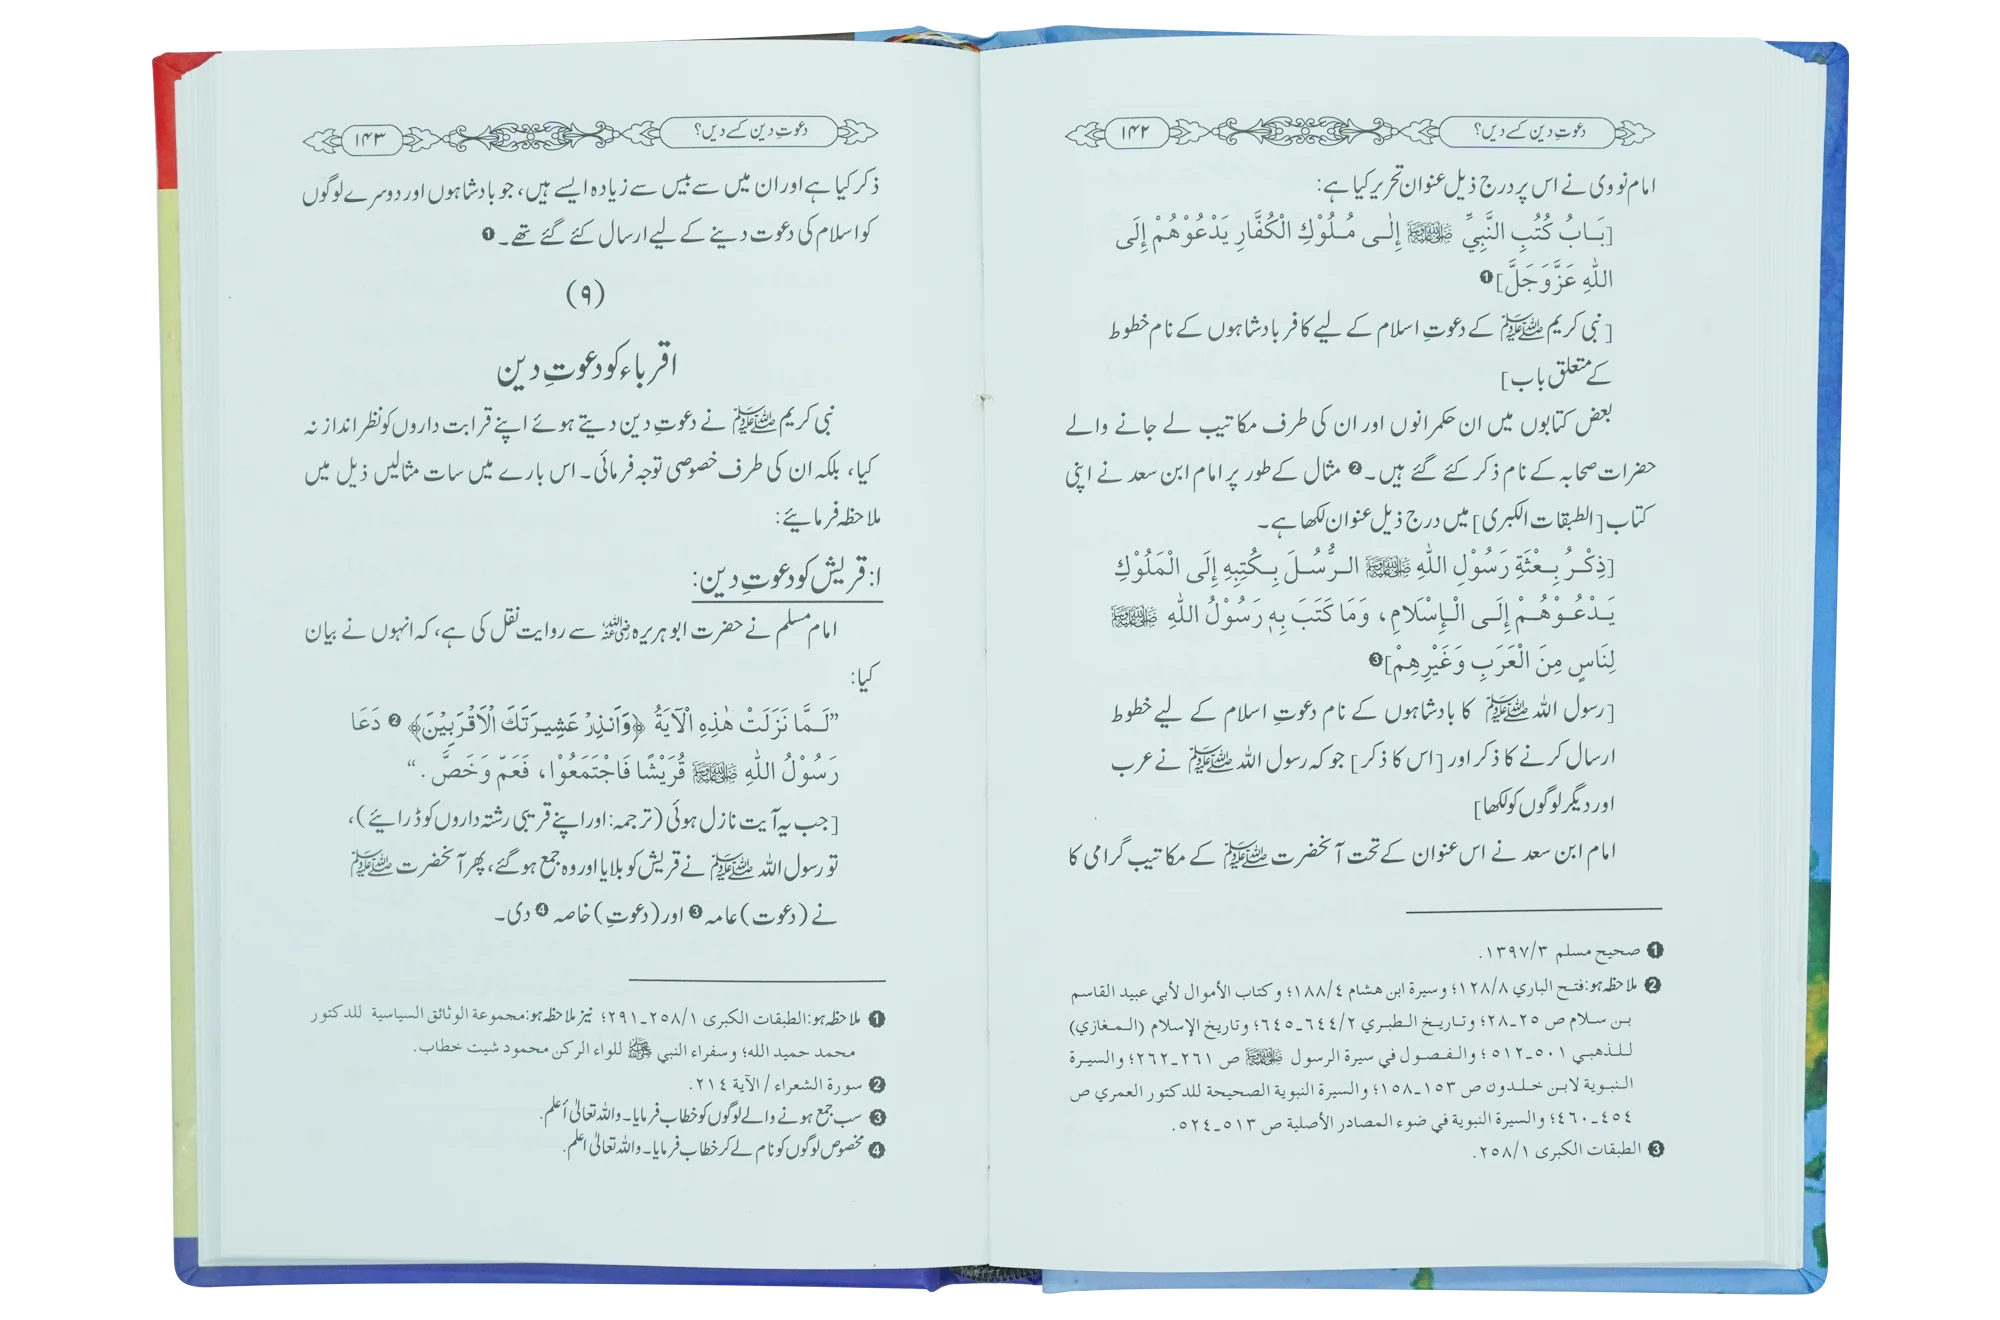 دعوتِ دین کسے دیں؟ ۱۴۲
امام نووی نے اس پر درج ذیل عنوان تحریر کیا ہے:
[بَابُ كُتُبِ النَّبِيِّ ﷺ إِلٰى مُلُوْكِ الْكُفَّارِ يَدْعُوْهُمْ إِلَى
اللّٰهِ عَزَّ وَجَلَّ]❶
[نبی کریم ﷺ کے دعوتِ اسلام کے لیے کافر بادشاہوں کے نام خطوط
کے متعلق باب]
بعض کتابوں میں ان حکمرانوں اور ان کی طرف مکاتیب لے جانے والے
حضرات صحابہ کے نام ذکر کئے گئے ہیں۔❷ مثال کے طور پر امام ابن سعد نے اپنی
کتاب [الطبقات الکبری] میں درج ذیل عنوان لکھا ہے۔
[ذِكْرُ بِعْثَةِ رَسُوْلِ اللّٰهِ ﷺ الرُّسُلَ بِكُتِبِهِ إِلَى الْمَلُوْكِ
يَدْعُوْهُمْ إِلَى الْإِسْلَامِ، وَمَا كَتَبَ بِهٖ رَسُوْلُ اللّٰهِ ﷺ
لِنَاسٍ مِنَ الْعَرَبِ وَغَيْرِهِمْ]❸
[رسول اللہ ﷺ کا بادشاہوں کے نام دعوتِ اسلام کے لیے خطوط
ارسال کرنے کا ذکر اور [اس کا ذکر] جو کہ رسول اللہ ﷺ نے عرب
اور دیگر لوگوں کو لکھا]
امام ابن سعد نے اس عنوان کے تحت آنحضرت ﷺ کے مکاتیب گرامی کا
❶ صحیح مسلم ۱۳۹۷/۳.
❷ ملاحظہ ہو: فتح الباري ۱۲۸/۸؛ وسيرة ابن هشام ۱۸۸/٤؛ وكتاب الأموال لأبي عبيد القاسم
بن سلام ص ۲۵۔۲۸؛ وتاريخ الطبري ٦٤٤/۲۔٦٤٥؛ وتاريخ الإسلام (المغازي)
للذهبي ٥٠١۔٥١٢؛ والفصول في سيرة الرسول ﷺ ص ٢٦١۔٢٦٢؛ والسيرة
النبوية لابن خلدون ص ١٥٣۔١٥٨؛ والسيرة النبوية الصحيحة للدكتور العمري ص
٤٥٤۔٤٦٠؛ والسيرة النبوية في ضوء المصادر الأصلية ص ٥١٣۔٥٢٤.
❸ الطبقات الكبرى ۲۵۸/۱.
دعوتِ دین کسے دیں؟ ۱۴۳
ذکر کیا ہے اور ان میں سے بیس سے زیادہ ایسے ہیں، جو بادشاہوں اور دوسرے لوگوں
کو اسلام کی دعوت دینے کے لیے ارسال کئے گئے تھے۔❶
(۹)
اقرباء کو دعوتِ دین
نبی کریم ﷺ نے دعوتِ دین دیتے ہوئے اپنے قرابت داروں کو نظر انداز نہ
کیا، بلکہ ان کی طرف خصوصی توجہ فرمائی۔ اس بارے میں سات مثالیں ذیل میں
ملاحظہ فرمائیے:
ا: قریش کو دعوتِ دین:
امام مسلم نے حضرت ابو ہریرہ رضی اللہ عنہ سے روایت نقل کی ہے، کہ انہوں نے بیان
کیا:
”لَمَّا نَزَلَتْ هٰذِهِ الْآيَةُ ﴿وَاَنْذِرْ عَشِيرَتَكَ الْاَقْرَبِيْنَ﴾❷ دَعَا
رَسُوْلُ اللّٰهِ ﷺ قُرَيْشًا فَاجْتَمَعُوْا، فَعَمّ وَخَصَّ.“
[جب یہ آیت نازل ہوئی (ترجمہ: اور اپنے قریبی رشتہ داروں کو ڈرائیے)،
تو رسول اللہ ﷺ نے قریش کو بلایا اور وہ جمع ہو گئے، پھر آنحضرت ﷺ
نے (دعوت) عامہ❸ اور (دعوتِ) خاصہ❹ دی۔
❶ ملاحظہ ہو: الطبقات الكبرى ۲۵۸/۱۔۲۹۱؛ نیز ملاحظہ ہو: مجموعة الوثائق السياسية للدكتور
محمد حميد الله؛ وسفراء النبي ﷺ للواء الركن محمود شيت خطاب.
❷ سورة الشعراء / الآية ۲۱٤.
❸ سب جمع ہونے والے لوگوں کو خطاب فرمایا۔ واللہ تعالیٰ أعلم.
❹ مخصوص لوگوں کو نام لے کر خطاب فرمایا۔ واللہ تعالیٰ اعلم.